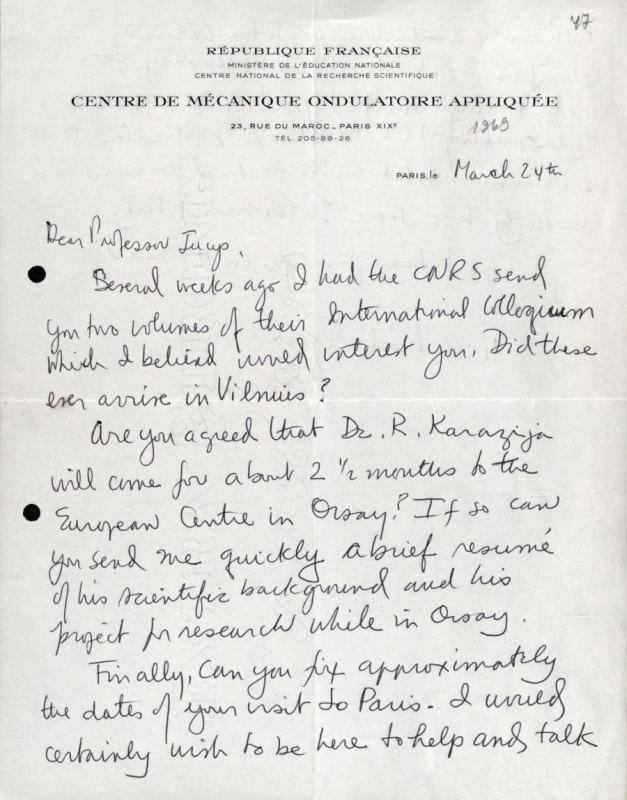 47
RÉPUBLIQUE FRANÇAISE
MINISTÈRE DE L'ÉDUCATION NATIONALE
CENTRE NATIONAL DE LA RECHERCHE SCIENTIFIQUE
CENTRE DE MÉCANIQUE ONDULATOIRE APPLIQUÉE
23, RUE DU MAROC_ PARIS XIXᵉ
1969
TÉL. 205-99-26
PARIS, le March 24th
Dear Professor Jucys,
Several weeks ago I had the CNRS send
you two volumes of their International Colloquium
which I believed would interest you. Did these
ever arrive in Vilnius?
Are you agreed that Dr. R. Karazija
will come for about 2 ½ months to the
European Centre in Orsay? If so can
you send me quickly a brief resumé
of his scientific background and his
project for research while in Orsay.
Finally, can you fix approximately
the dates of your visit to Paris. I would
certainly wish to be here to help and talk